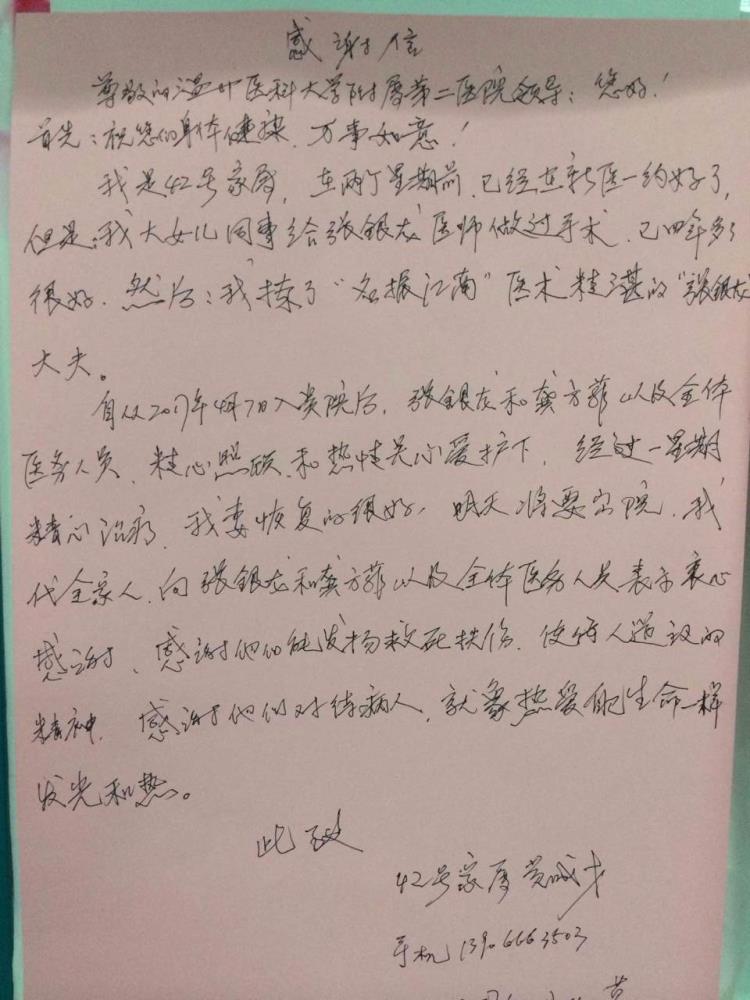 感谢信
尊敬的温州医科大学附属第二医院领导：您好！
首先：祝您们身体健康、万事如意！
我是42号家属，在两个星期前，已经在新医一约好了，
但是：我大女儿同事给张银龙医师做过手术，已四年多了
很好．然后：我拣了“名振江南”医术精湛的“张银龙”
大夫。
自从2017年4月7日入贵院后，张银龙和龚方菲以及全体
医务人员，精心照顾和热情关心爱护下，经过一星期
精心治疗，我妻恢复的很好，明天将要出院，我
代全家人，向张银龙和龚方菲以及全体医务人员表示衷心
感谢，感谢他们能发扬救死扶伤，使得人道义的
精神，感谢他们对待病人，就象热爱自己生命一样
发光和热。
此致
42号家属黄 才
手机13906663503